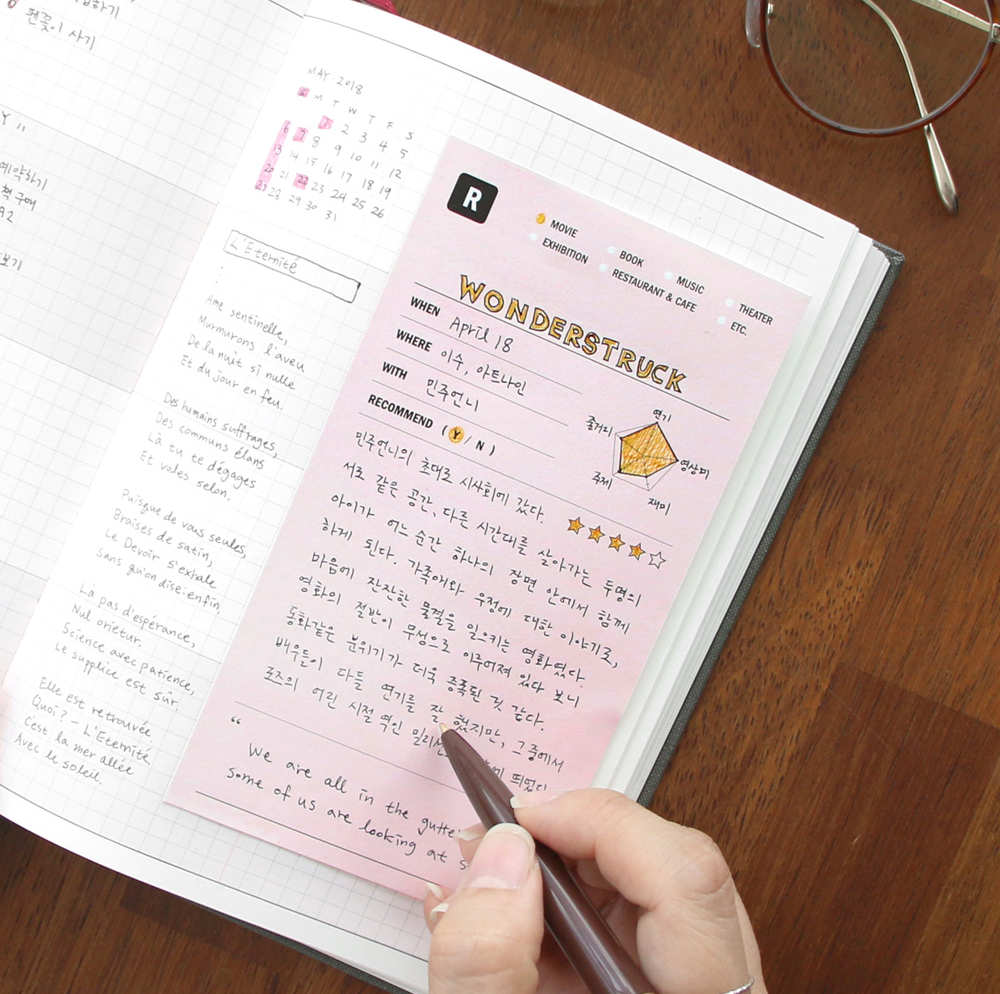 편꽂이 사기
예약하기
책 구매
보기
MAY 2018
S M T W T F S
1 2 3 4 5
6 7 8 9 10 11 12
13 14 15 16 17 18 19
20 21 22 23 24 25 26
27 28 29 30 31
L'Eternité
Âme sentinelle,
Murmurons l'aveu
De la nuit si nulle
Et du jour en feu.
Des humains suffrages,
Des communs élans
Là tu te dégages
Et voles selon.
Puisque de vous seules,
Braises de satin,
Le Devoir s'exhale
Sans qu'on dise:enfin
Là pas d'espérance,
Nul orietur.
Science avec patience,
Le supplice est sûr.
Elle est retrouvée
Quoi? - L'Eternité
C'est la mer allée
Avec le soleil.
R
MOVIE BOOK MUSIC THEATER
EXHIBITION RESTAURANT & CAFE ETC.
WONDERSTRUCK
WHEN April 18
WHERE 이수, 아트나인
WITH 민주언니
RECOMMEND ( Y / N )
연기
영상미
재미
주제
줄거리
민주언니의 초대로 시사회에 갔다.
서로 같은 공간, 다른 시간대를 살아가는 두명의
아이가 어느 순간 하나의 장면 안에서 함께
하게 된다. 가족애와 우정에 대한 이야기로,
마음에 잔잔한 물결을 일으키는 영화였다.
영화의 절반이 무성으로 이루어져 있다 보니
동화같은 분위기가 더욱 증폭된 것 같다.
배우들이 다들 연기를 잘 했지만, 그 중에서
로즈의 어린 시절 역인 밀리 띄었다
“
We are all in the gutte
some of us are looking at s